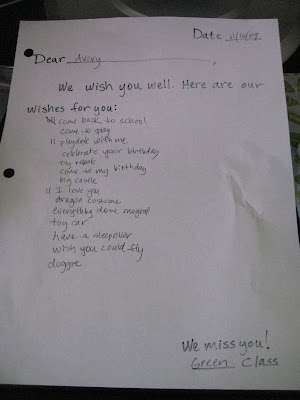 Date 11/11/09
Dear Avery,
We wish you well. Here are our
wishes for you:
come back to school
come to play
11 playdate with me
celebrate your birthday
toy robots
come to my birthday
big castle
11 I love you
dragon costume
everything done magical
toy car
have a sleepover
wish you could fly
doggie
We miss you!
Green Class